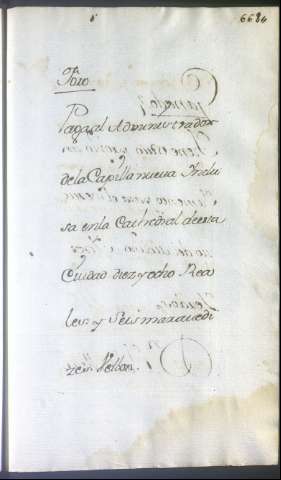 6684
Paga al Administrador
de la Capilla nueva Inclu
sa en la Cathedral de esta
Ciudad diez y ocho Rea
les y Seis maravedi
zes Vellon.